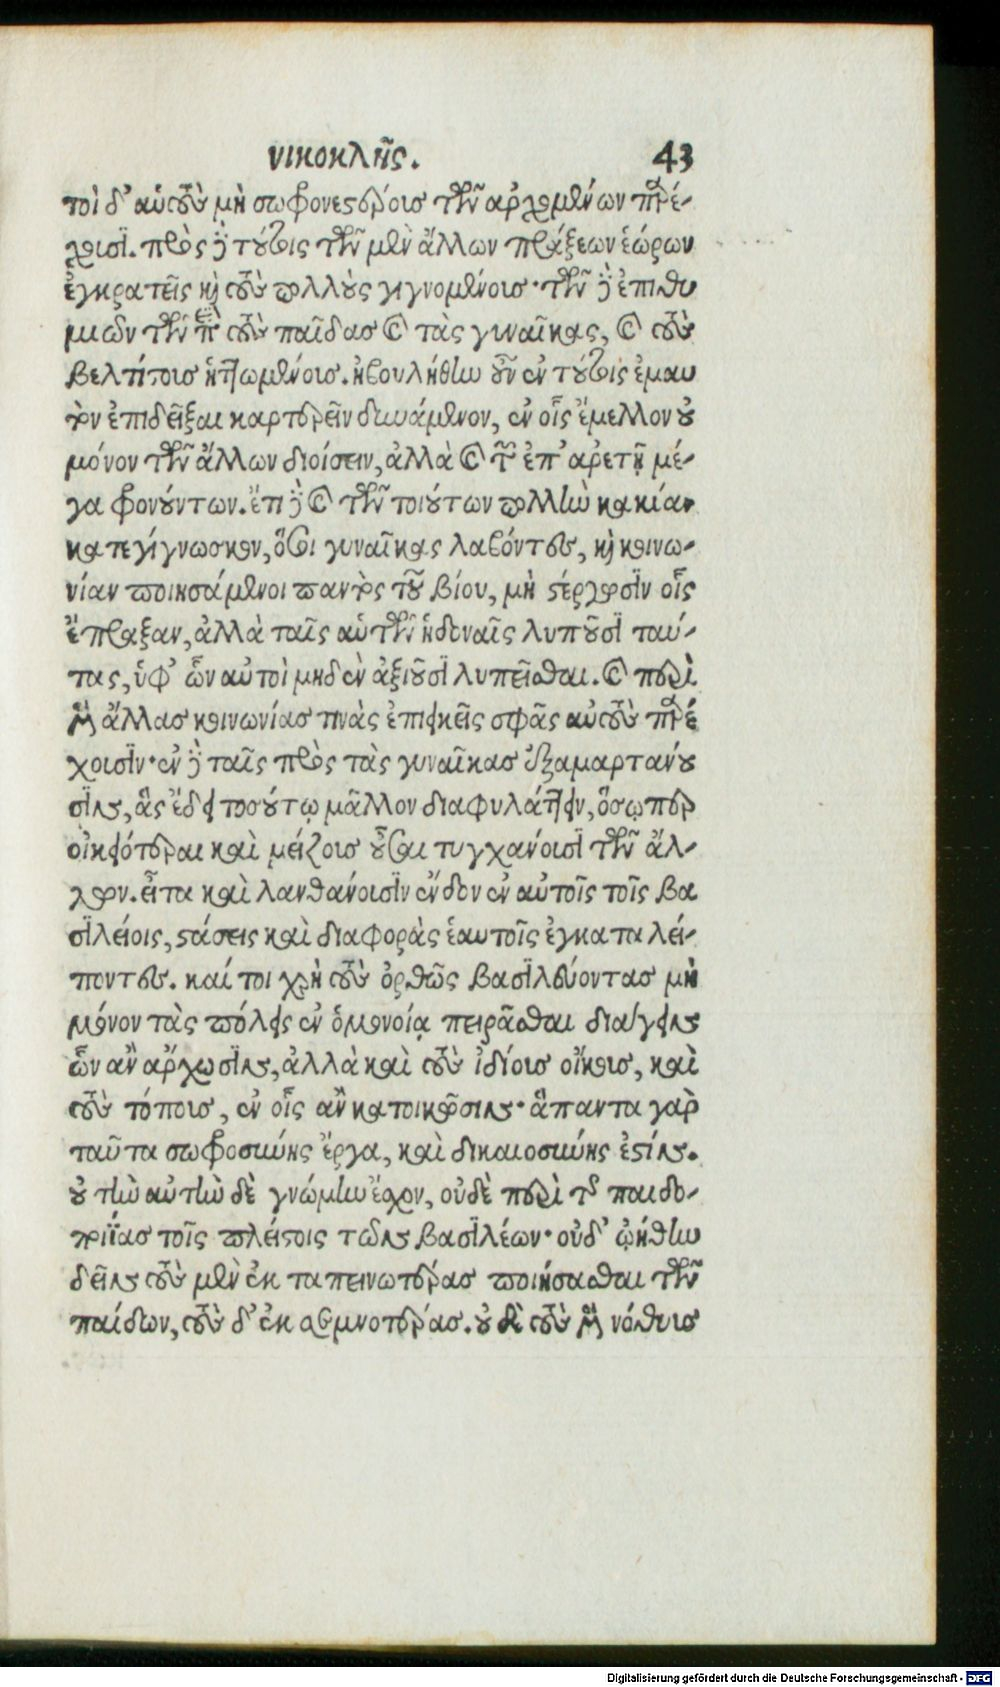 νικοκλῆς. 43
τοὶ δ' αὑτοὺς μὴ σωφρονεστέρους τῶν ἀρχομένων παρέ-
χουσι. πρὸς δὲ τούτοις τῶν μὲν ἄλλων πράξεων ἑώρων
ἐγκρατεῖς καὶ τοὺς πολλοὺς γιγνομένους· τῶν δὲ ἐπιθυ
μιῶν τῶν περὶ τοὺς παῖδας καὶ τὰς γυναῖκας, καὶ τοὺς
βελτίστους ἡττωμένους. ἠβουλήθην οὖν ἐν τούτοις ἐμαυ
τὸν ἐπιδεῖξαι καρτερεῖν δυνάμενον, ἐν οἷς ἔμελλον οὐ
μόνον τῶν ἄλλων διοίσειν, ἀλλὰ καὶ τῶν ἐπ' ἀρετῇ μέ-
γα φρονούντων. ἔτι δὲ καὶ τῶν τοιούτων πολλὴν κακίαν
κατεγίγνωσκον, ὅσοι γυναῖκας λαβόντες, καὶ κοινω-
νίαν ποιησάμενοι παντὸς τοῦ βίου, μὴ στέργουσιν οἷς
ἔπραξαν, ἀλλὰ ταῖς αὑτῶν ἡδοναῖς λυποῦσι ταύ-
τας, ὑφ' ὧν αὐτοὶ μηδὲν ἀξιοῦσι λυπεῖσθαι. καὶ περὶ
μὲν ἄλλας κοινωνίας τινὰς ἐπιεικεῖς σφᾶς αὐτοὺς παρέ
χουσιν· ἐν δὲ ταῖς πρὸς τὰς γυναῖκας ἐξαμαρτάνου
σιν, ἃς ἔδει τοσούτῳ μᾶλλον διαφυλάττειν, ὅσῳπερ
οἰκειότεραι καὶ μείζους οὖσαι τυγχάνουσι τῶν ἄλ-
λων. εἶτα καὶ λανθάνουσιν ἔνδον ἐν αὐτοῖς τοῖς βα
σιλείοις, στάσεις καὶ διαφορὰς ἑαυτοῖς ἐγκαταλεί-
ποντες. καί τοι χρὴ τοὺς ὀρθῶς βασιλεύοντας μὴ
μόνον τὰς πόλεις ἐν ὁμονοίᾳ πειρᾶσθαι διάγειν
ὧν ἂν ἄρχωσιν, ἀλλὰ καὶ τοὺς ἰδίους οἴκους, καὶ
τοὺς τόπους, ἐν οἷς ἂν κατοικῶσιν· ἅπαντα γὰρ
ταῦτα σωφροσύνης ἔργα, καὶ δικαιοσύνης ἐστίν.
οὐ τὴν αὐτὴν δὲ γνώμην ἔχον, οὐδὲ περὶ τῆς παιδο-
ποιίας τοῖς πλείστοις τῶν βασιλέων· οὐδ' ᾠήθην
δεῖν τοὺς μὲν ἐκ ταπεινοτέρας ποιήσασθαι τῶν
παίδων, τοὺς δ' ἐκ σεμνοτέρας. οὐδὲ τοὺς μὲν νόθους